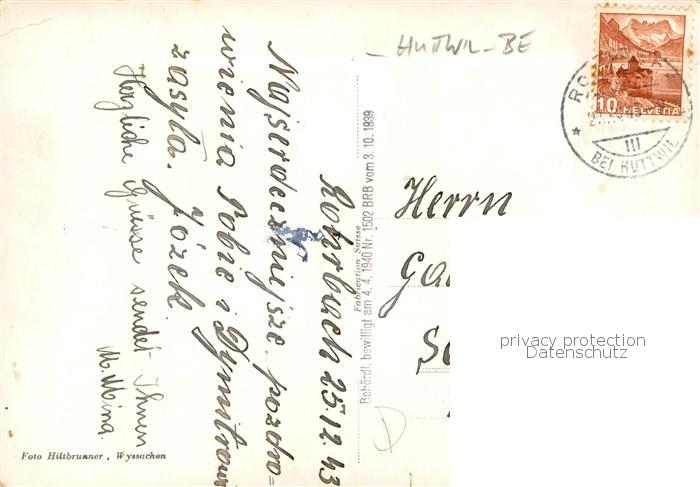 HUTTWIL-BE
10 HELVETIA
BEI HUTTWIL
III
Rohrbach 25.12.43
Najserdeczniejsze pozdro-
wienia Tobie i Dymitrowi
zasyła. Józek
Herzliche Grüsse sendet Ihnen
M. Mina.
Fabrication Suisse
Behördl. bewilligt am 4. 4. 1940 Nr. 1502 BRB vom 3. 10. 1939
Herrn
privacy protection
Datenschutz
Foto Hiltbrunner, Wyssachen